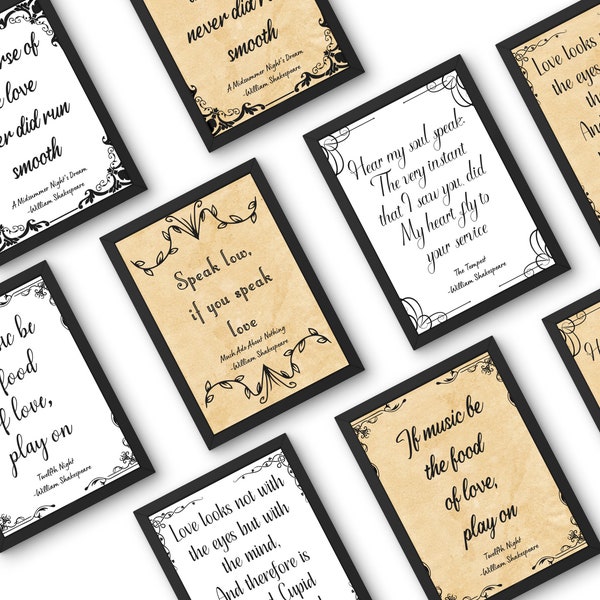 rse of
e love
er did run
smooth
A Midsummer Night's Dream
-William Shakespeare
never did run
smooth
A Midsummer Night's Dream
-William Shakespeare
Hear my soul speak:
The very instant
that I saw you, did
My heart fly to
your service
The Tempest
-William Shakespeare
Love looks
the eyes
the
And
Speak low,
if you speak
love
Much Ado About Nothing
-William Shakespeare
ic be
food
f love,
play on
Twelfth Night
-William Shakespeare
If music be
the food
of love,
play on
Twelfth Night
-William Shakespeare
Love looks not with
the eyes but with
the mind,
And therefore is
d Cupid